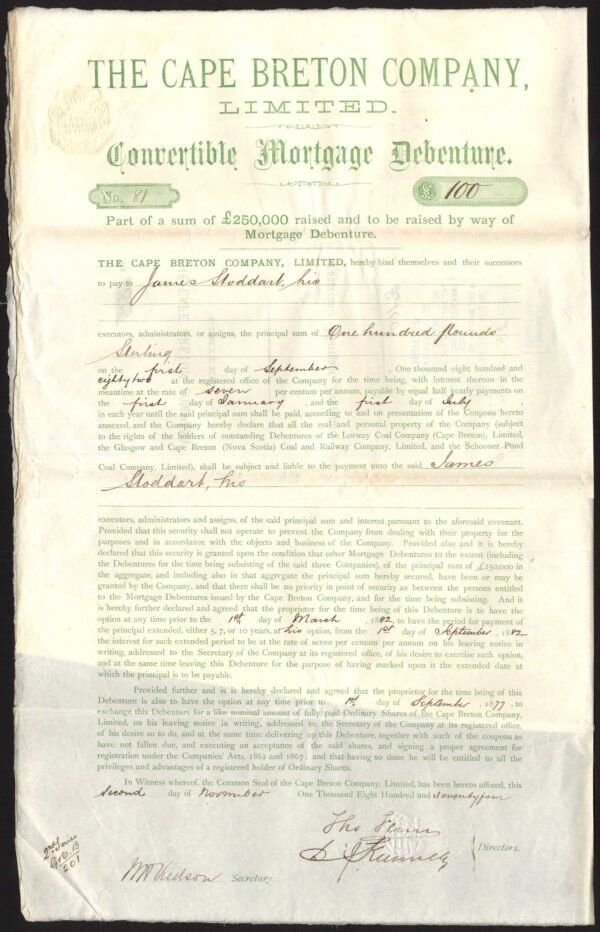 THE CAPE BRETON COMPANY,
LIMITED.
Convertible Mortgage Debenture.
No. 81
£ 100
Part of a sum of £250,000 raised and to be raised by way of
Mortgage Debenture.
THE CAPE BRETON COMPANY, LIMITED, hereby bind themselves and their successors
to pay to James Stoddart, his
executors, administrators, or assigns, the principal sum of One hundred Pounds
Sterling
on the first day of September , One thousand eight hundred and
eighty two at the registered office of the Company for the time being, with interest thereon in the
meantime at the rate of seven per centum per annum, payable by equal half yearly payments on
the first day of January , and the first day of July ,
in each year until the said principal sum shall be paid, according to and on presentation of the Coupons hereto
annexed, and the Company hereby declare that all the real and personal property of the Company (subject
to the rights of the holders of outstanding Debentures of the Lorway Coal Company (Cape Breton), Limited,
the Glasgow and Cape Breton (Nova Scotia) Coal and Railway Company, Limited, and the Schooner Pond
Coal Company, Limited), shall be subject and liable to the payment unto the said James
Stoddart, his
executors, administrators and assigns, of the said principal sum and interest pursuant to the aforesaid covenant.
Provided that this security shall not operate to prevent the Company from dealing with their property for the
purposes and in accordance with the objects and business of the Company. Provided also and it is hereby
declared that this security is granted upon the condition that other Mortgage Debentures to the extent (including
the Debentures for the time being subsisting of the said three Companies), of the principal sum of £250,000 in
the aggregate, and including also in that aggregate the principal sum hereby secured, have been or may be
granted by the Company, and that there shall be no priority in point of security as between the persons entitled
to the Mortgage Debentures issued by the Cape Breton Company, and for the time being subsisting. And it
is hereby further declared and agreed that the proprietor for the time being of this Debenture is to have the
option at any time prior to the 1st day of March , 1882, to have the period for payment of
the principal extended, either 5, 7, or 10 years, at his option, from the 1st day of September, 1882
the interest for such extended period to be at the rate of seven per centum per annum on his leaving notice in
writing, addressed to the Secretary of the Company at its registered office, of his desire to exercise such option,
and at the same time leaving this Debenture for the purpose of having marked upon it the extended date at
which the principal is to be payable.
Provided further and is is hereby declared and agreed that the proprietor for the time being of this
Debenture is also to have the option at any time prior to 1st day of September, 1877, to
exchange this Debenture for a like nominal amount of fully paid Ordinary Shares of the Cape Breton Company,
Limited, on his leaving notice in writing, addressed to the Secretary of the Company at its registered office,
of his desire so to do, and at the same time delivering up this Debenture, together with such of the coupons as
have not fallen due, and executing an acceptance of the said shares, and signing a proper agreement for
registration under the Companies' Acts, 1862 and 1867; and that having so done he will be entitled to all the
privileges and advantages of a registered holder of Ordinary Shares.
In Witness whereof, the Common Seal of the Cape Breton Company, Limited, has been hereto affixed, this
second day of November One Thousand Eight Hundred and seventyfour
Directors.
Secretary.
201